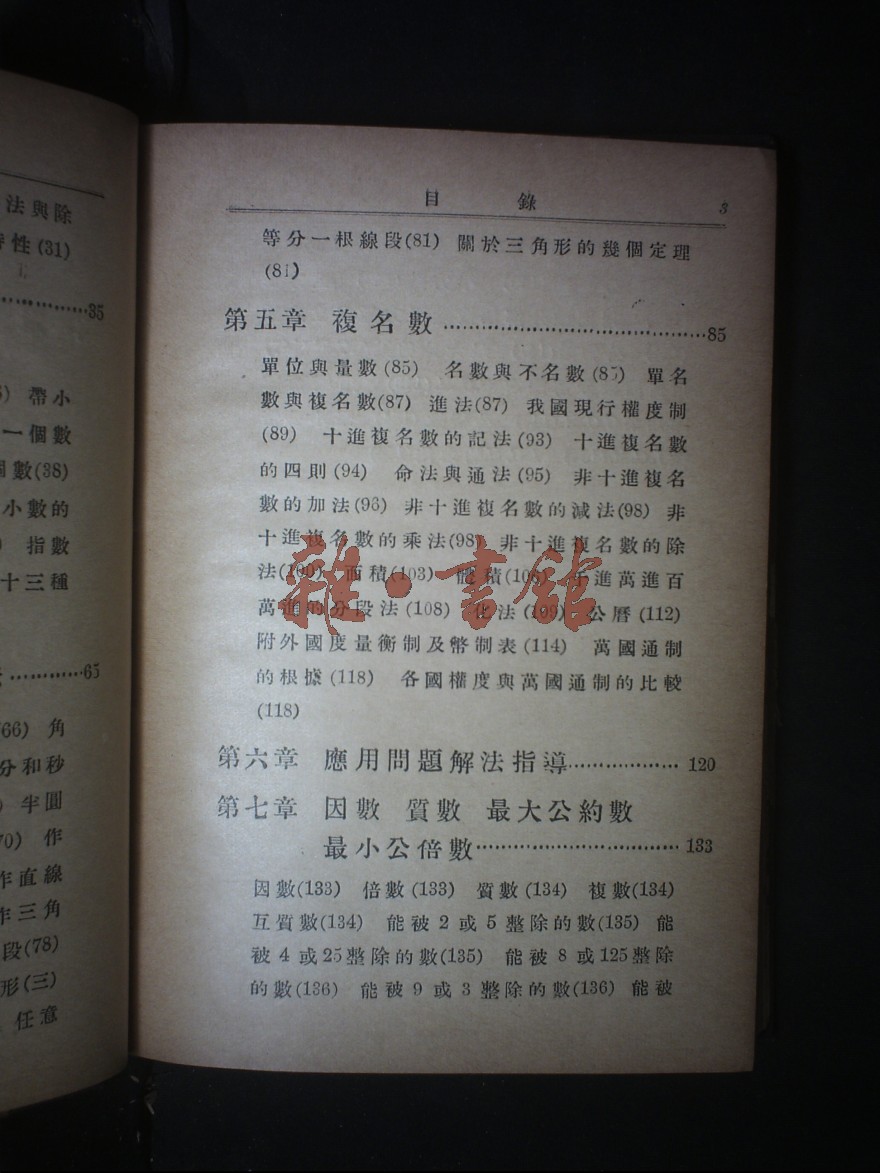 法與除
性(31)
35
帶小
一個數
數(38)
小數的
指數
十三種
65
66) 角
分和秒
半圓
70) 作
作直線
作三角
段(78)
形(三)
任意
目 錄 3
等分一根線段(81) 關於三角形的幾個定理
(81)
第五章 複名數 ........................................85
單位與量數(85) 名數與不名數(85) 單名
數與複名數(87) 進法(87) 我國現行權度制
(89) 十進複名數的記法(93) 十進複名數
的四則(94) 命法與通法(95) 非十進複名
數的加法(96) 非十進複名數的減法(98) 非
十進複名數的乘法(98) 非十進複名數的除
法(100) 面積(103) 體積(106) 千進萬進百
萬進的分段法(108) 化法(109) 公曆(112)
附外國度量衡制及幣制表(114) 萬國通制
的根據(118) 各國權度與萬國通制的比較
(118)
第六章 應用問題解法指導.................. 120
第七章 因數 質數 最大公約數
最小公倍數................................ 133
因數(133) 倍數(133) 質數(134) 複數(134)
互質數(134) 能被2或5整除的數(135) 能
被4或25整除的數(135) 能被8或125整除
的數(136) 能被9或3整除的數(136) 能被
雜·書館